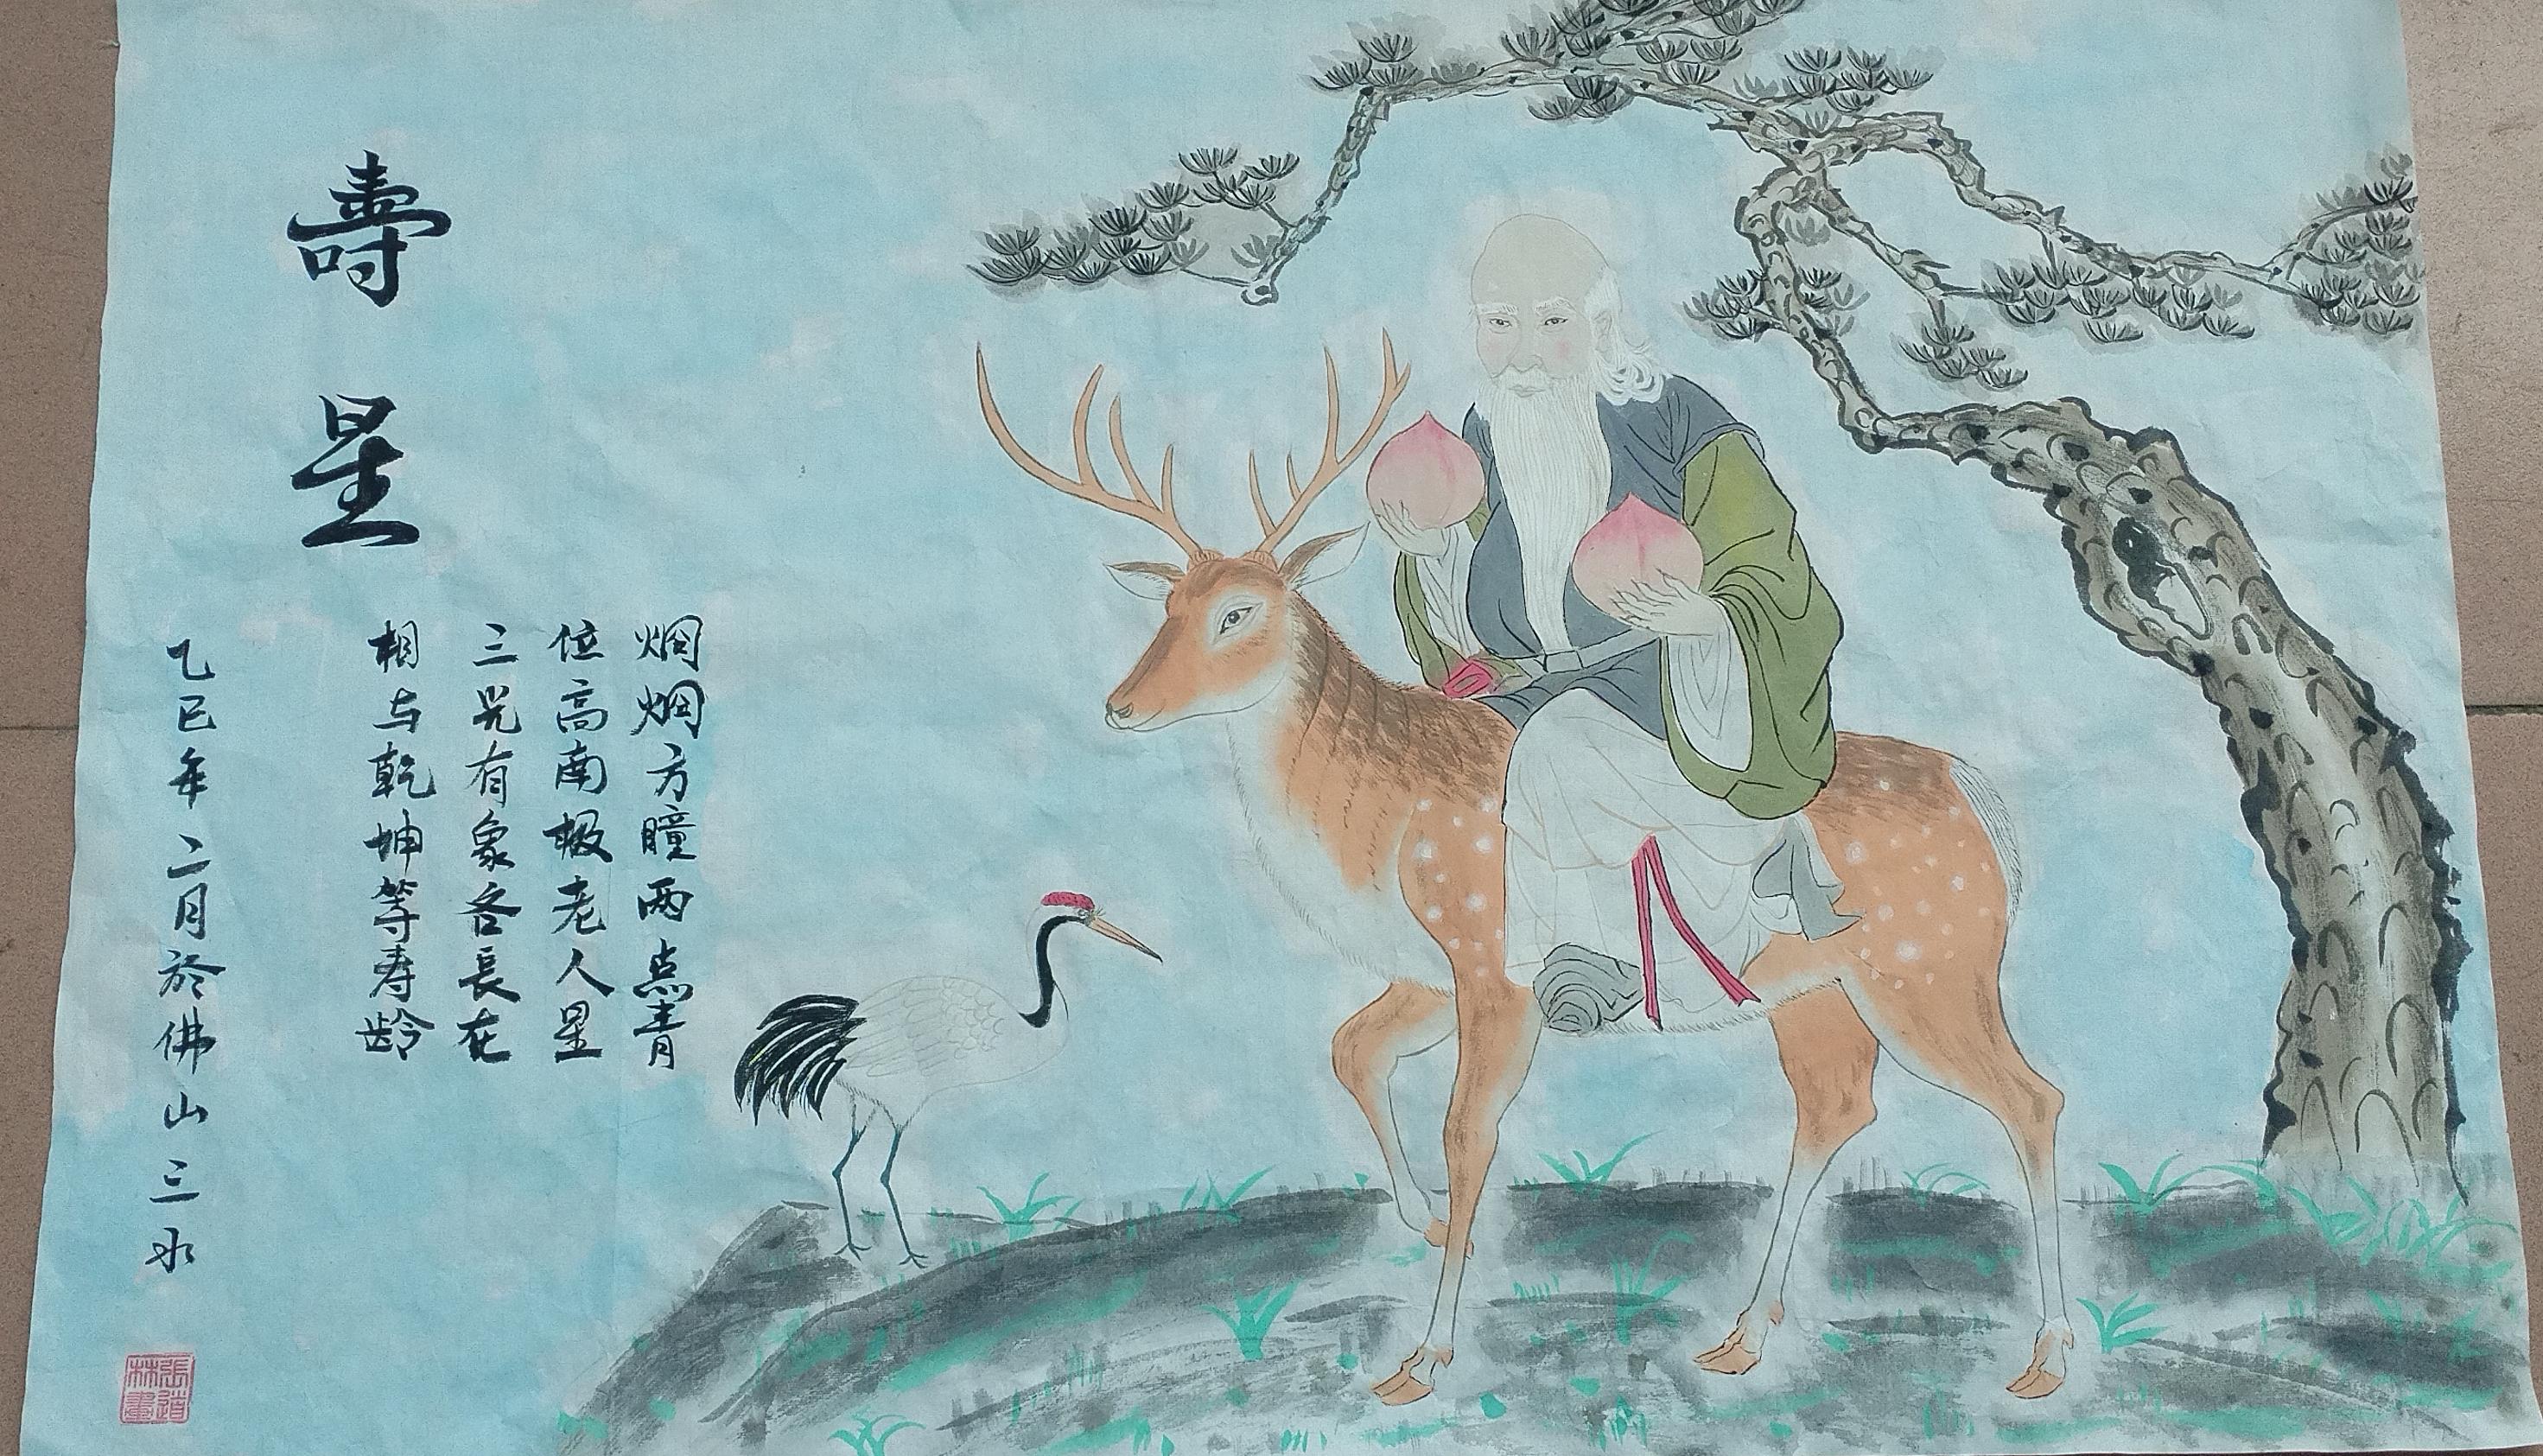 炯炯方瞳两点青
位高南极老人星
三光有象各長在
相与乾坤等寿龄
壽星
乙巳年二月於佛山三水
張道林畫